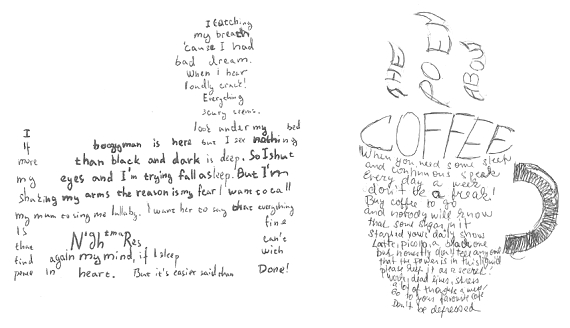 I catching
my breath
'cause I had
bad dream.
When i hear
loudly crack!
Everything
scary seems.
I look under my bed
If boogyman is here but I see nothing
more than black and dark is deep. So I shut
my eyes and I'm trying fall asleep. But I'm
shaking my arms the reason is my fear I want to call
my mum to sing me lullaby. I want her to say that everything
is fine
that NighTmaRes can't
find again my mind, if I sleep with
power in heart. But it's easier said than Done!
THE
POEM
ABOUT
COFFEE
When you need some sleep
and continuous speak
Every day a week
don't be a freak!
Buy coffee to go
and nobody will know
that some sugar in it
started your daily show
Latte, picollo, black one
but honestly don't tell anyone
that the power is in this liquid
please keep it as a secret!
Work, dead lines, stress
a lot of thoughts a mess
Go to your favourite cafe
Don't be depressed